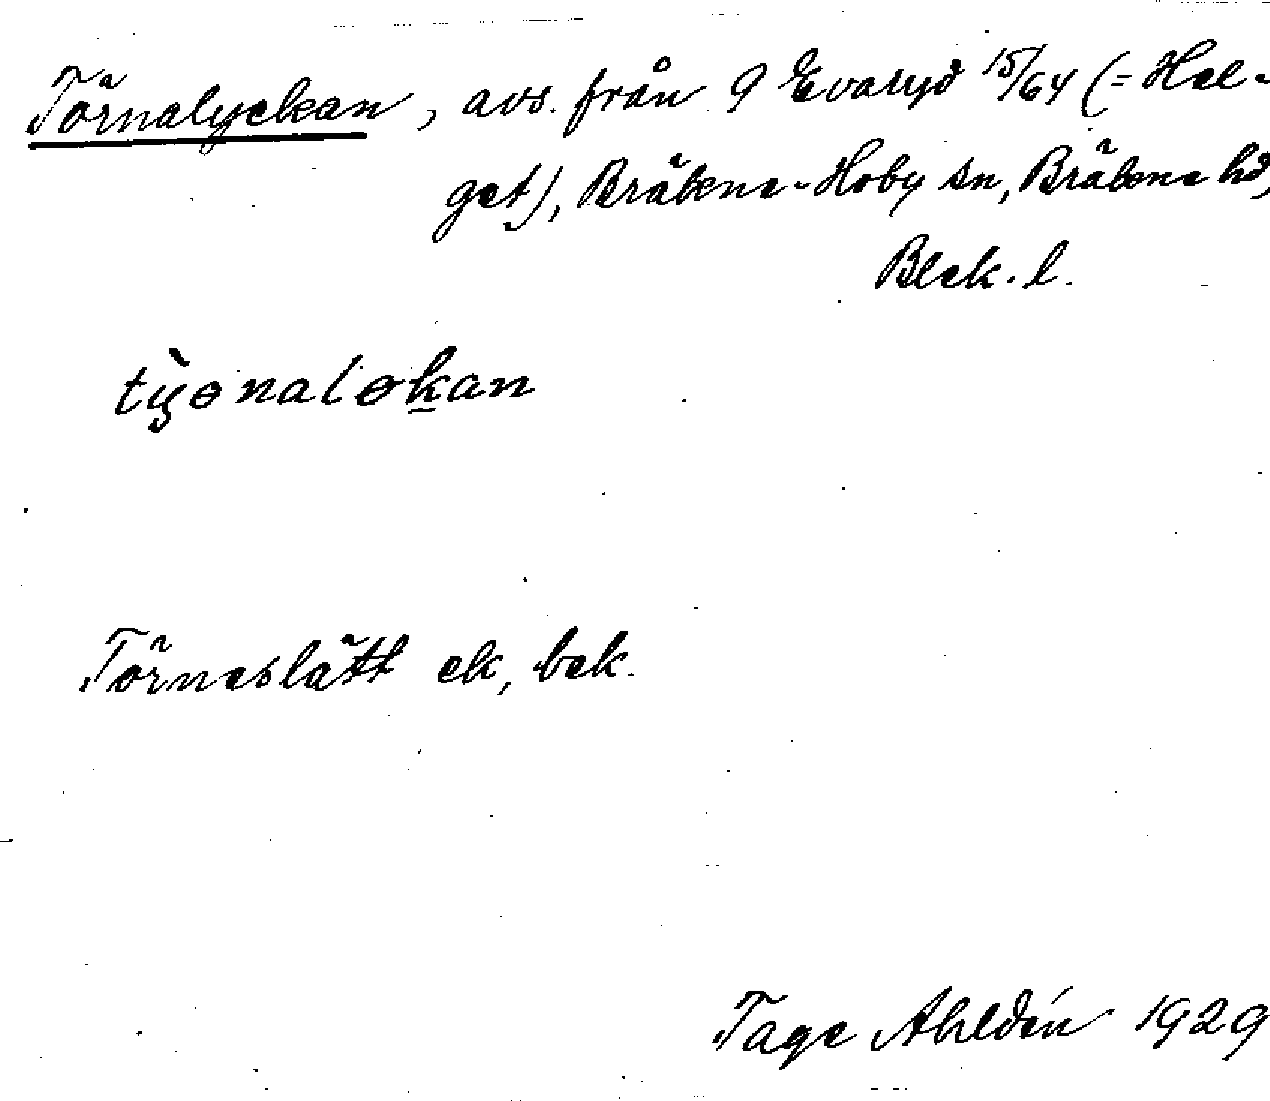 Törnalyckan, avs. från 9 Evaryd 15/64 (= Hal-
get), Bräkne-Hoby sn, Bräkne hd,
Blek. l.
Törneslätt ek, bek.
Tage Ahldén 1929